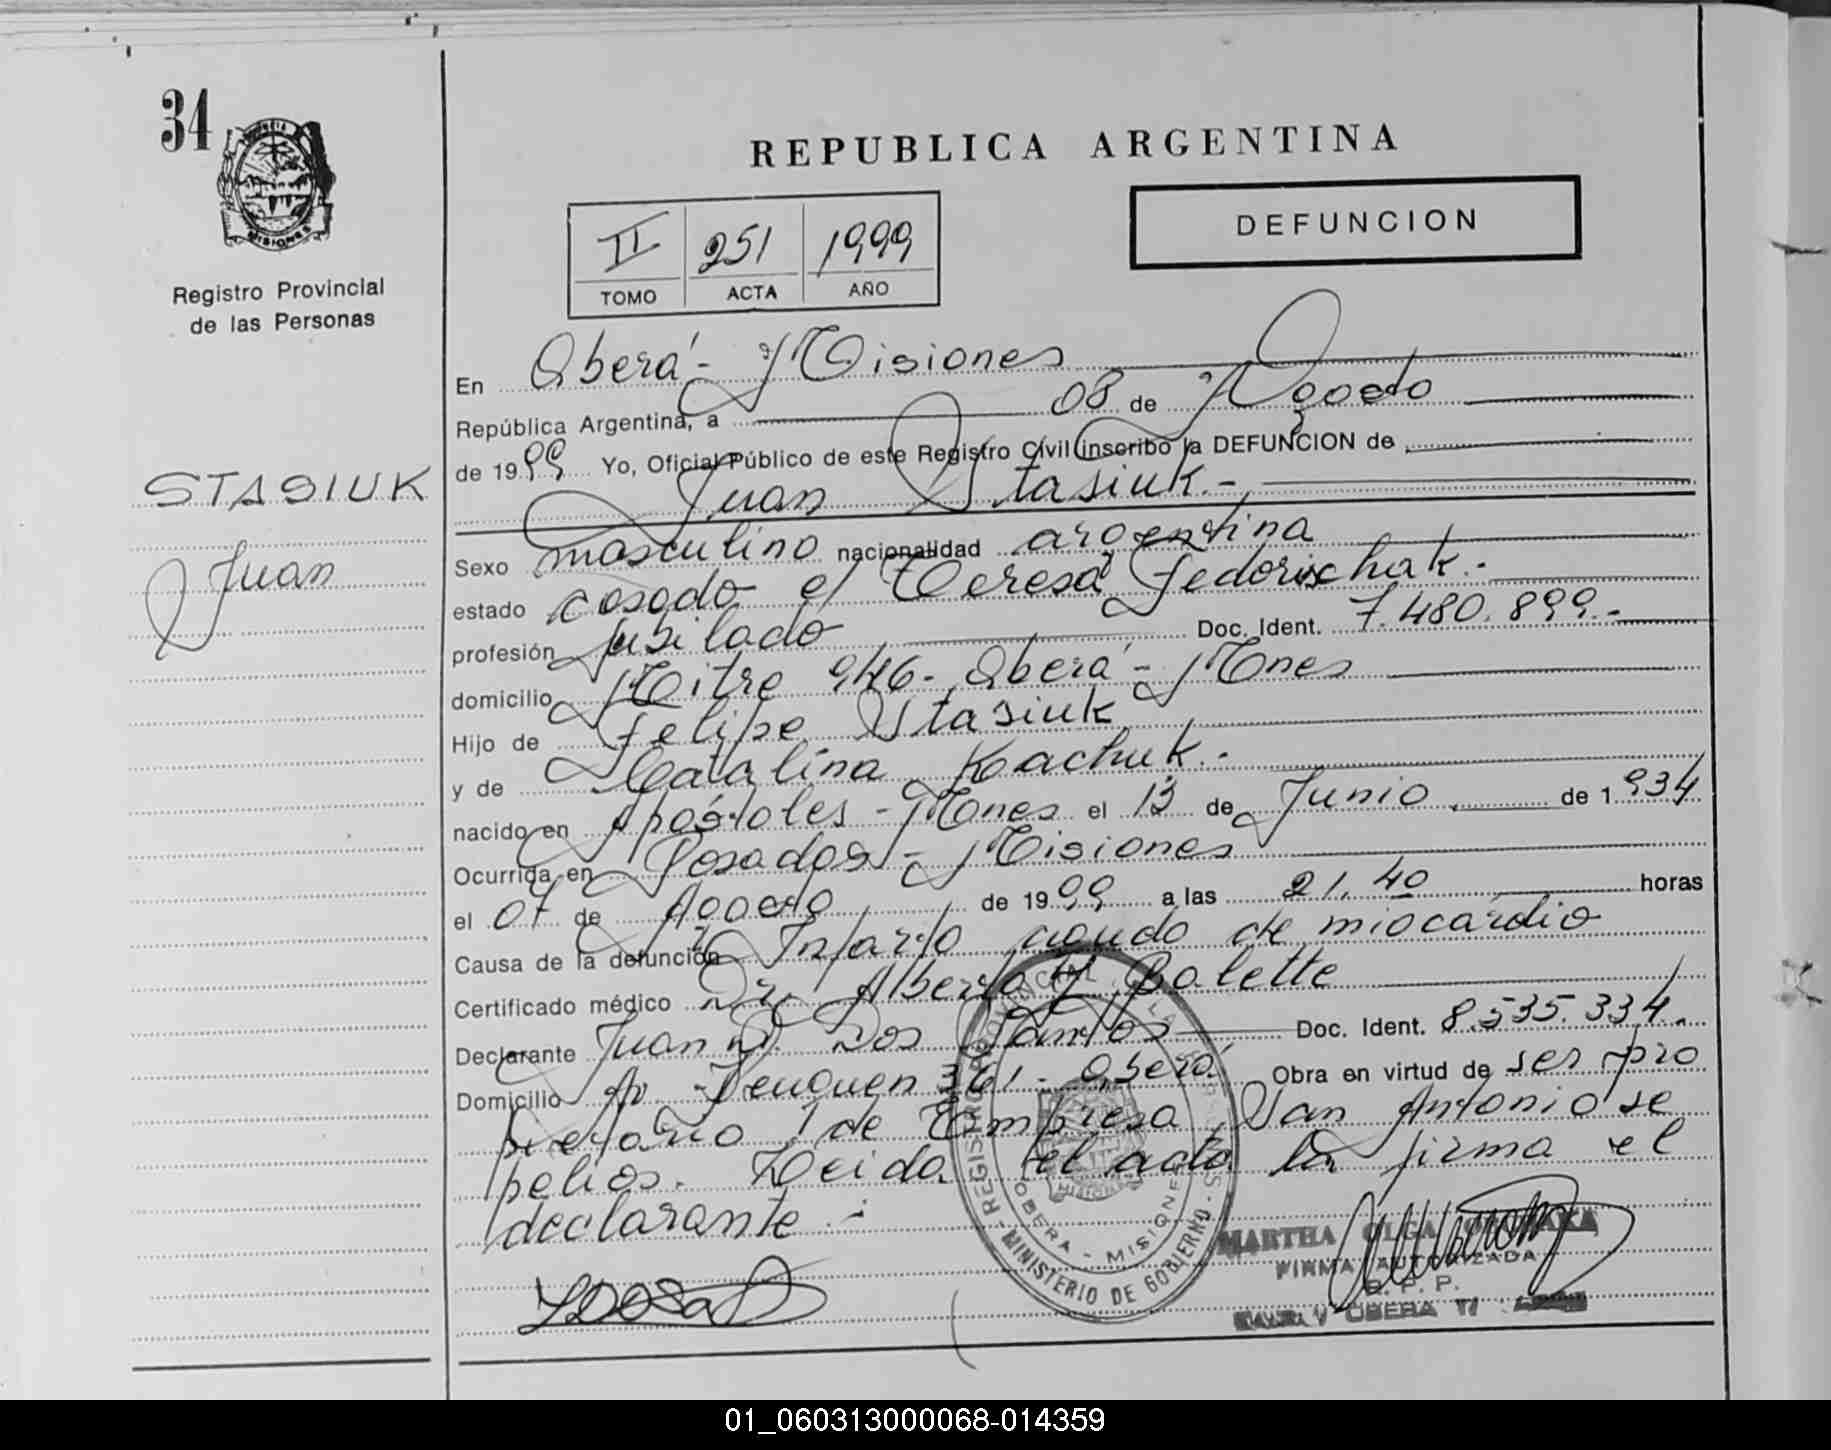 34
MISIONES
Registro Provincial
de las Personas
STASIUK
Juan
REPUBLICA ARGENTINA
II 251 1999
TOMO ACTA AÑO
DEFUNCION
En Oberá - Misiones
República Argentina, a 08 de Agosto
de 1999 Yo, Oficial Público de este Registro Civil inscribo la DEFUNCION de
Juan Stasiuk.-
Sexo masculino nacionalidad argentina
estado casado c/ Teresa Fedorischak.-
profesión jubilado Doc. Ident. 7.480.899.-
domicilio Mitre 946 - Oberá - Mnes
Hijo de Felipe Stasiuk
y de Catalina Kachuk.-
nacido en Apóstoles - Mnes el 13 de Junio de 1934
Ocurrida en Posadas - Misiones
el 07 de Agosto de 1999 a las 21,40 horas
Causa de la defunción Infarto agudo de miocardio
Certificado médico Dr. Alberto Balette
Declarante Juan Dos Santos Doc. Ident. 8.535.334.
Domicilio Av. Neuquen 361 - Oberá Obra en virtud de ser pro
pietario de Empresa San Antonio se
pelios. Leida el acta la firma el
declarante.-
REGISTRO PROVINCIAL DE LAS PERSONAS - MINISTERIO DE GOBIERNO
OBERA - MISIONES
MARTHA OLGA
FIRMA AUTORIZADA
R. P. P.
OBERA
01_060313000068-014359